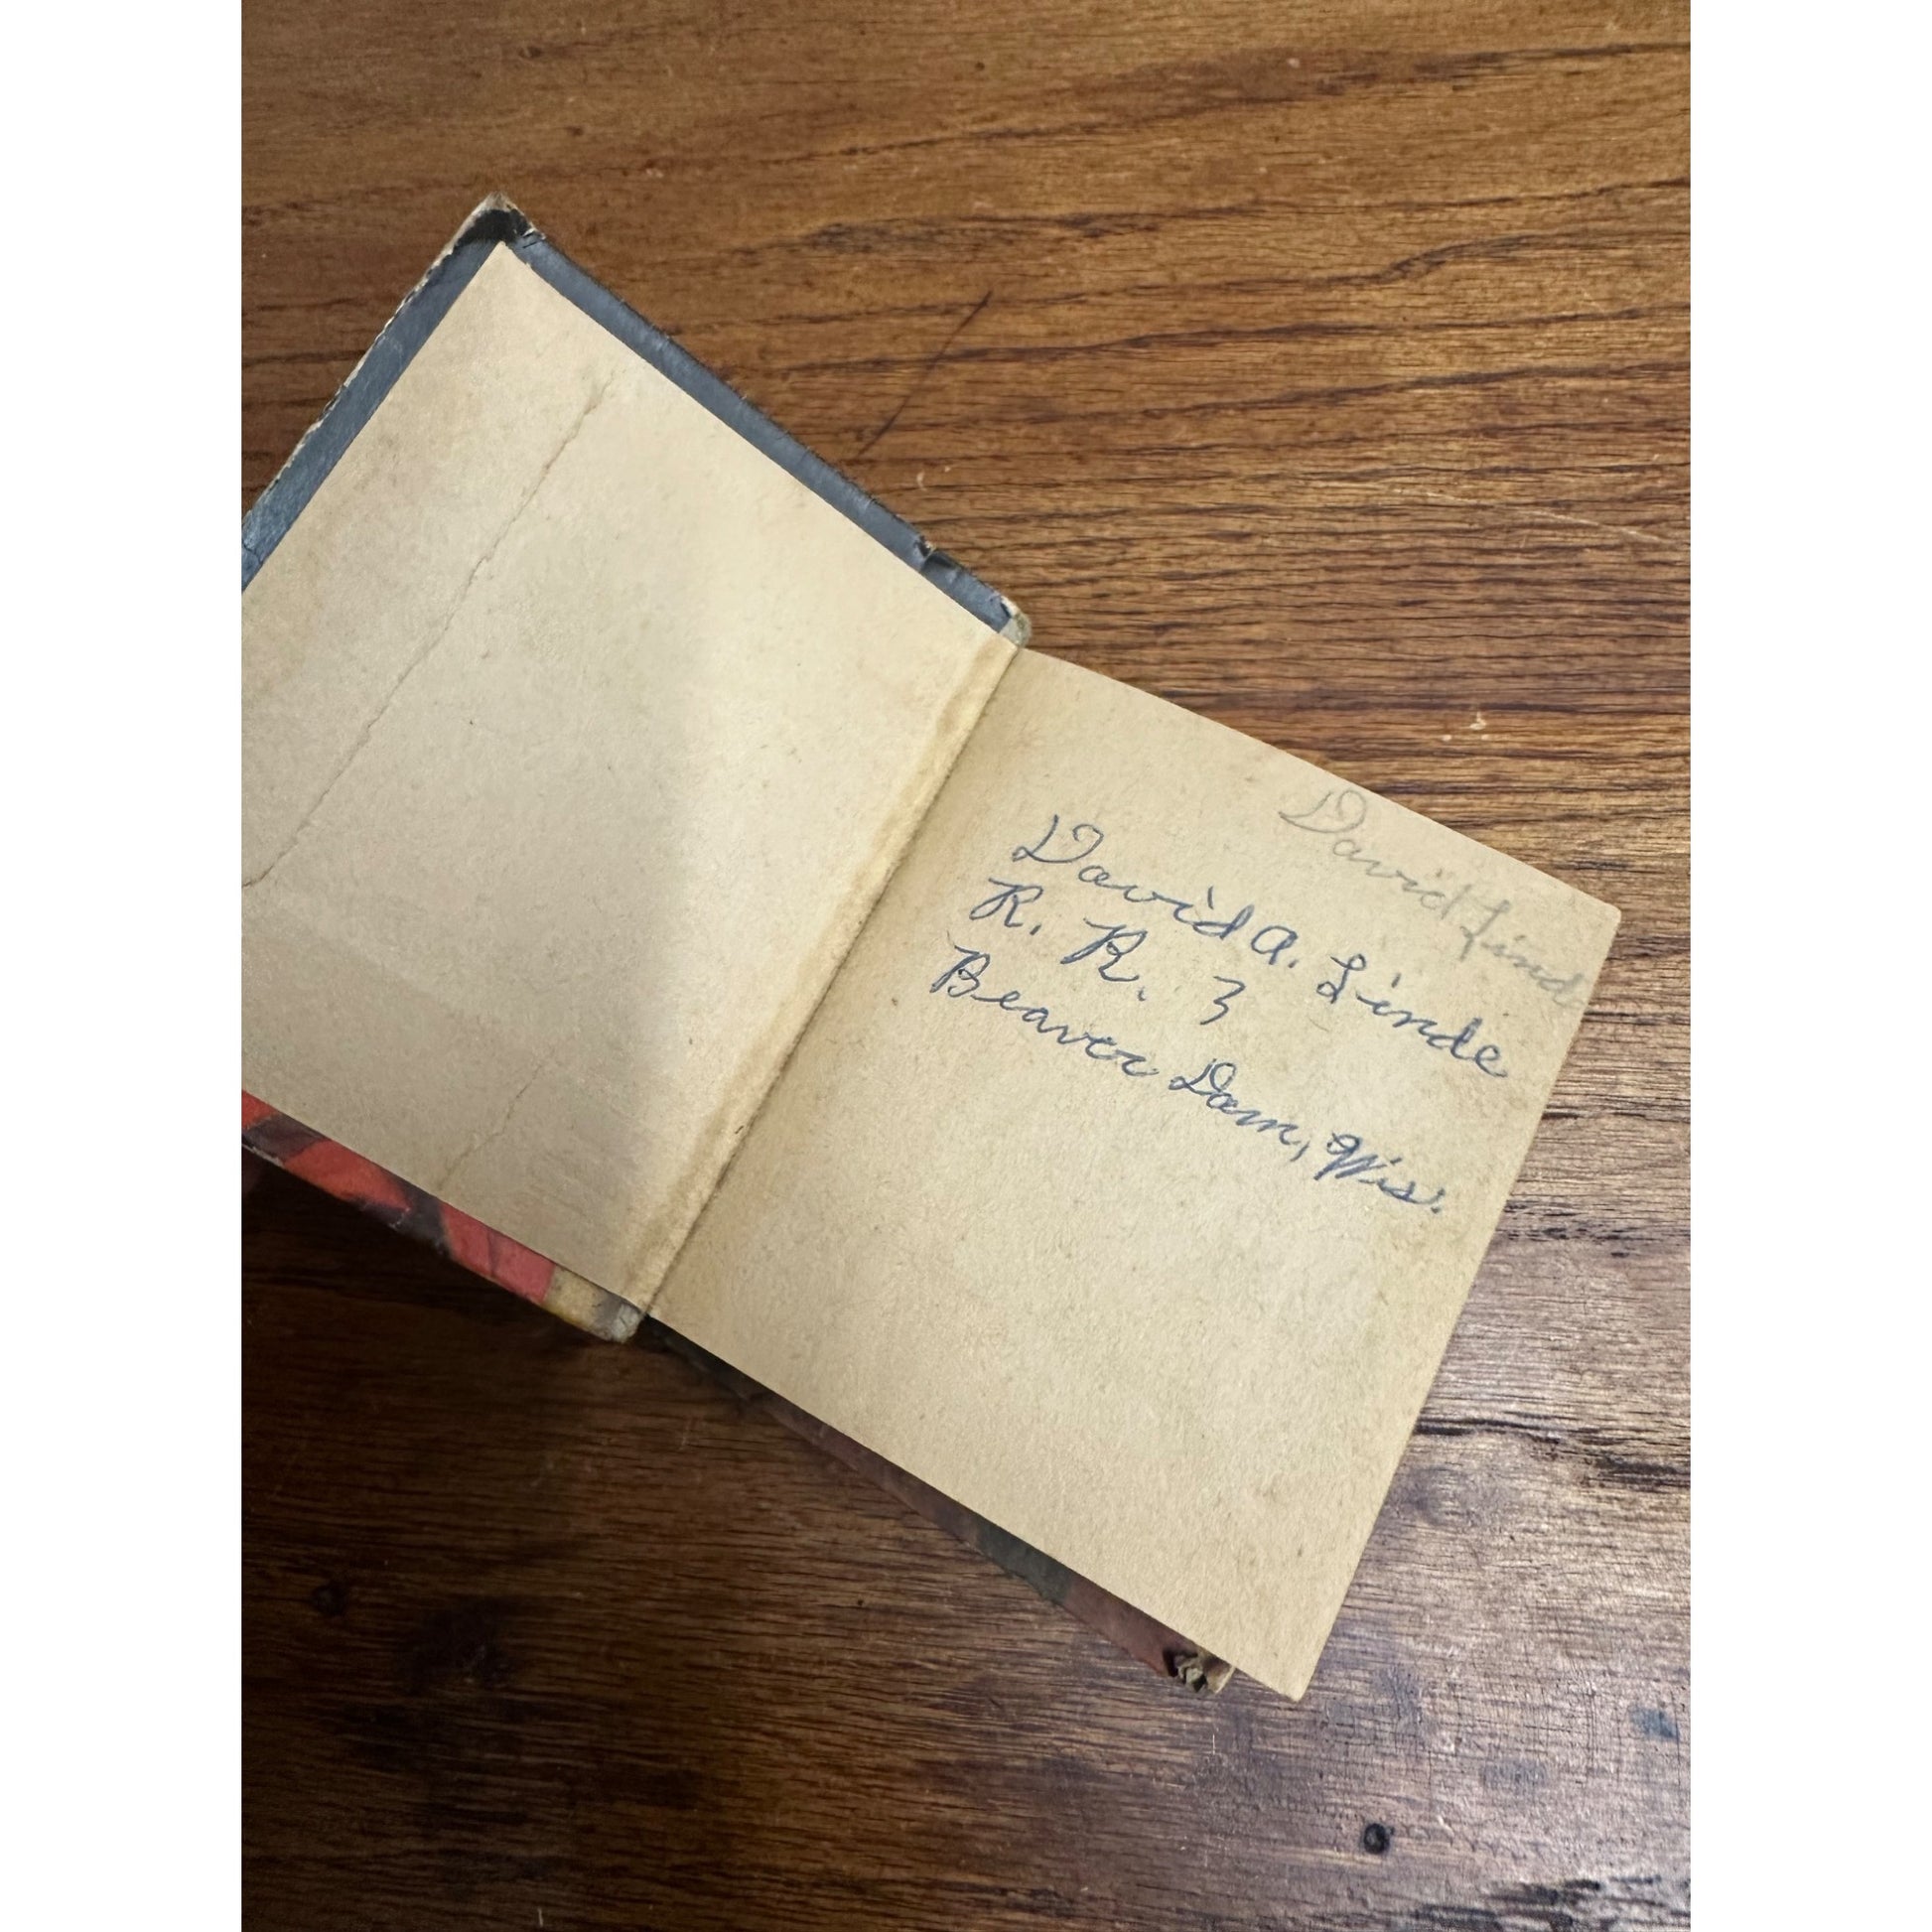 David Lind
David A. Linde
R. R. 3
Beaver Dam, Wis.